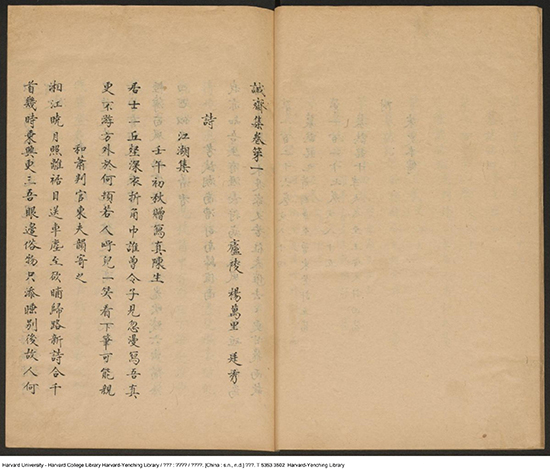 誠齋集卷第一
廬陵 楊萬里 廷秀
詩
江湖集
壬午初秋贈寫真陳生
居士一丘壑深衣折角巾誰曾令子見忽漫寫吾真
更不游方外於何頓若人呼兒一笑看下筆可能親
和蕭判官東夫韻寄之
湘江曉月照離裾目送車塵至欲晡歸路新詩合千
首幾時乘興更三吾眼邊俗物只添睡別後故人何
Harvard University - Harvard College Library Harvard-Yenching Library / ??? : ???? / ????. [China : s.n., n.d.] ???. T 5353 3502 Harvard-Yenching Library